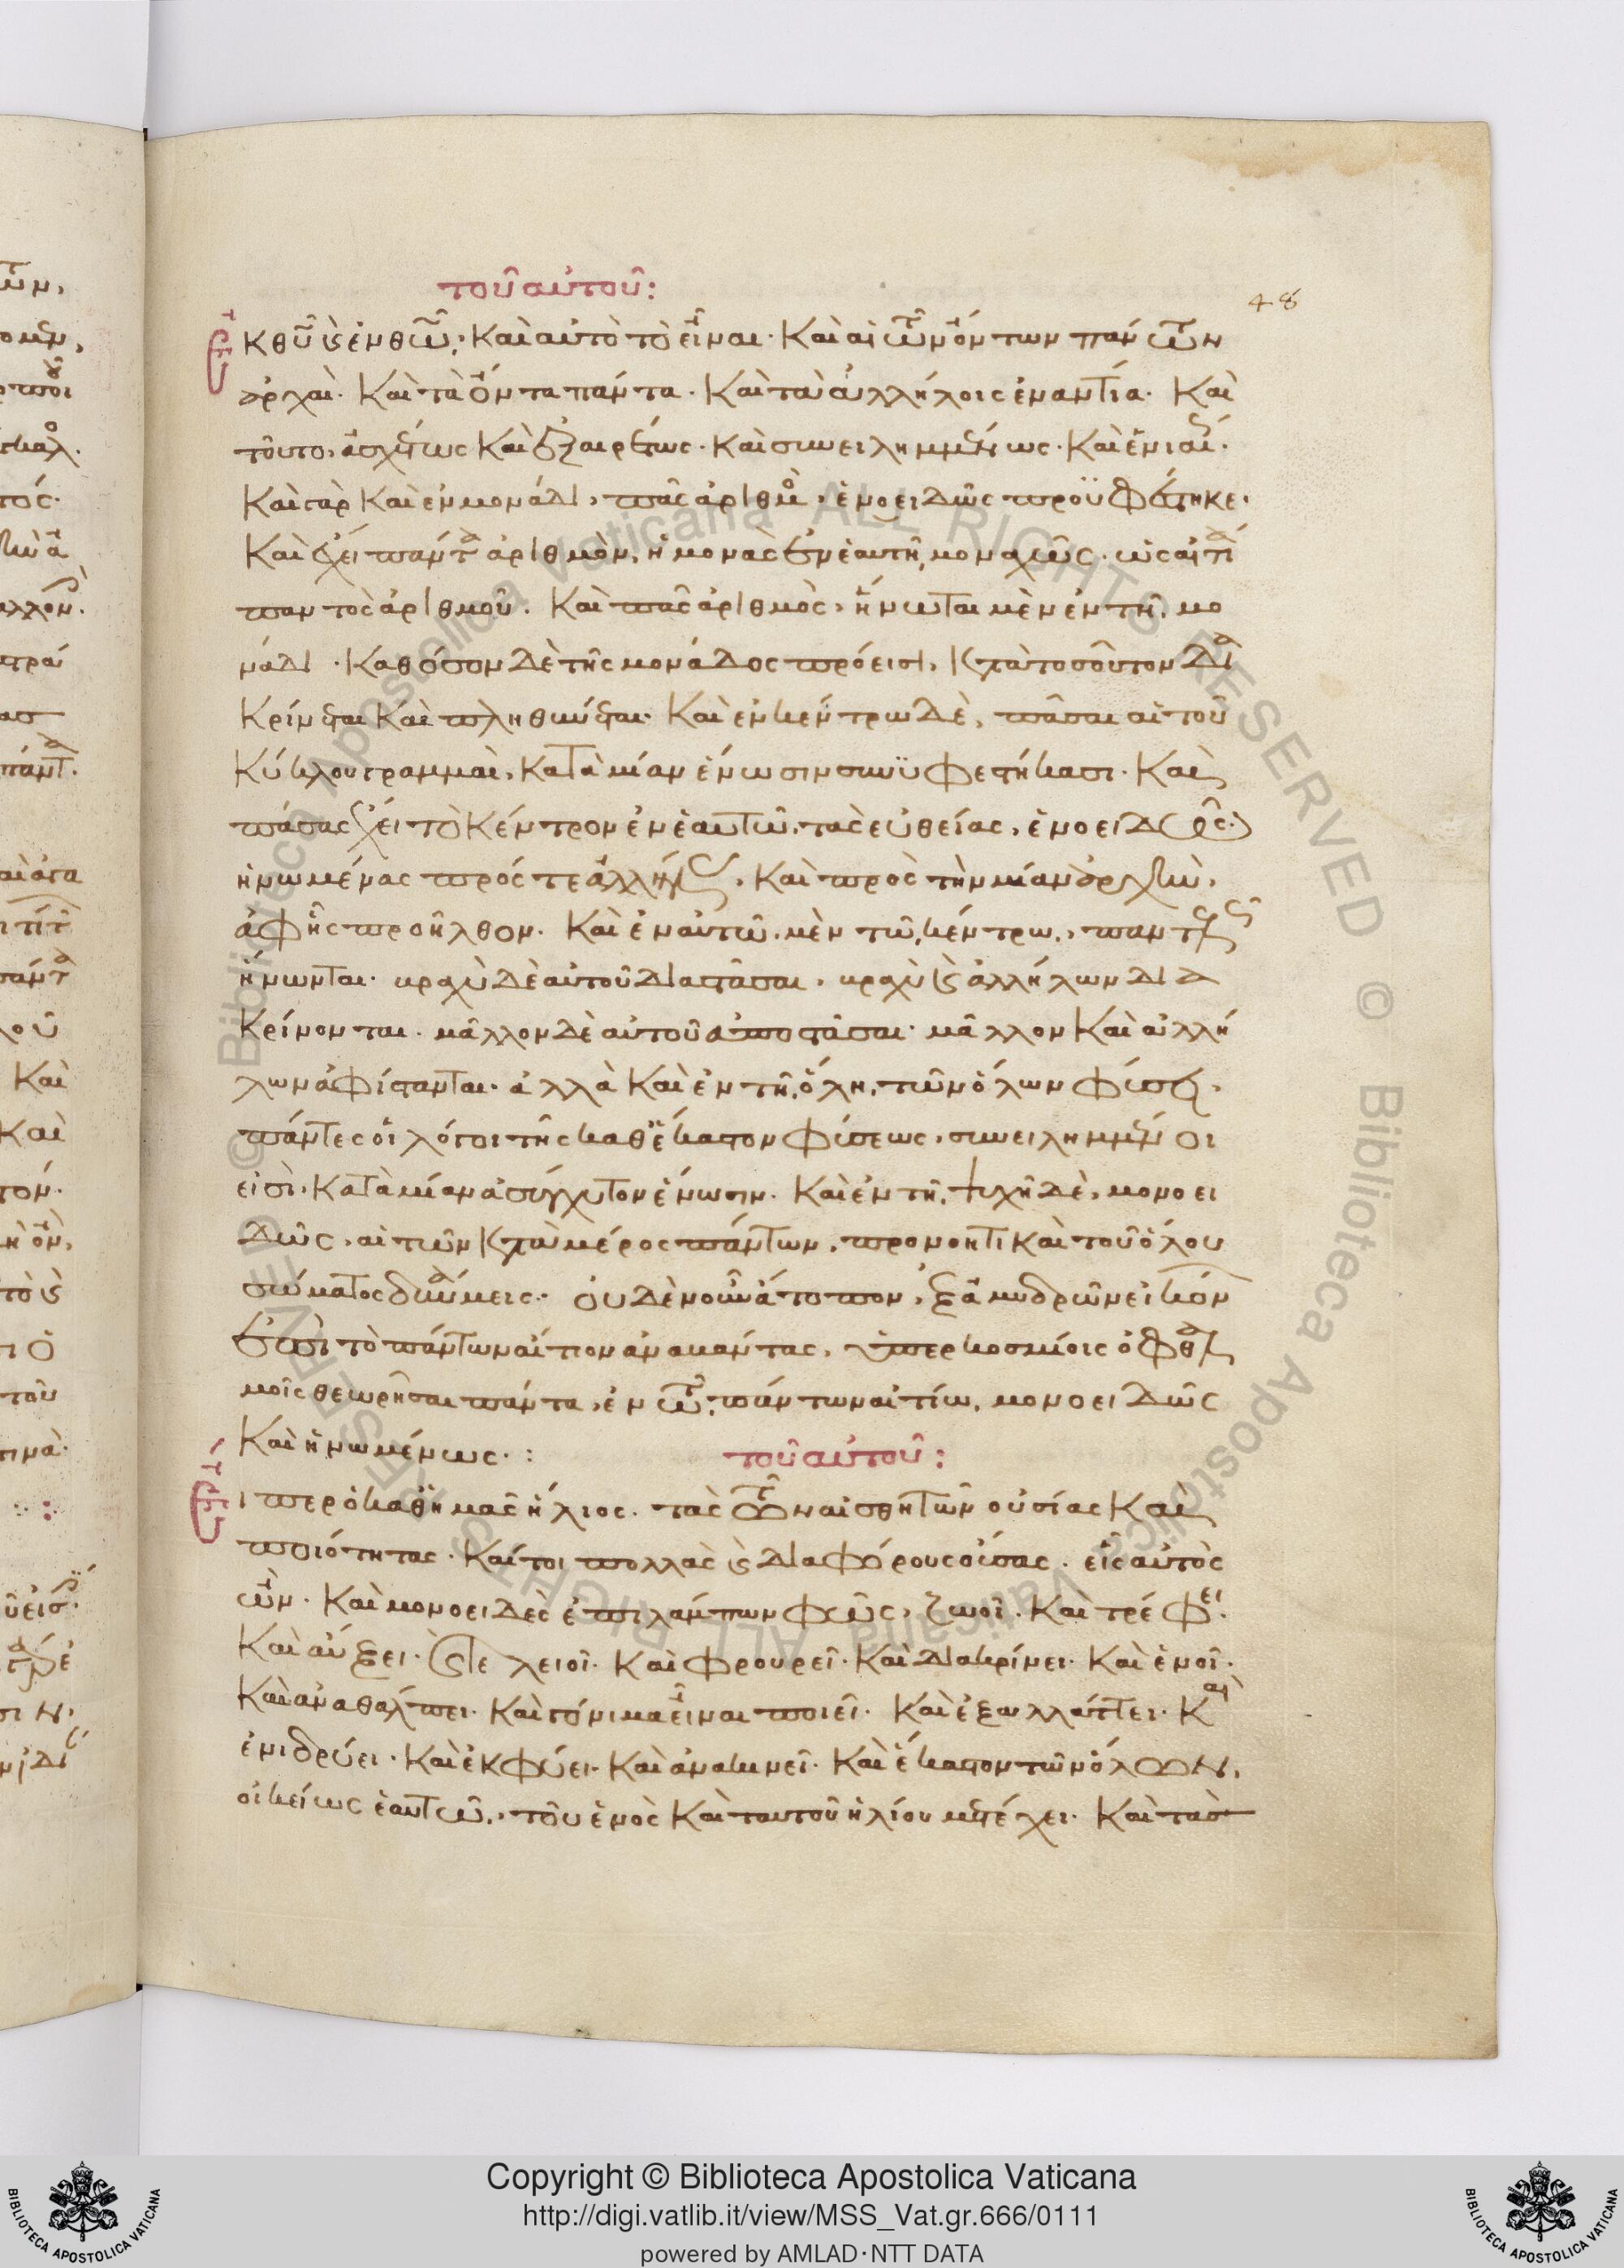 τοῦ αὐτοῦ:
48
Ἐκ θῦ καὶ ἐν θῶ· καὶ αὐτὸ τὸ εἶναι· καὶ αἱ τῶν ὄντων πάντων
ἀρχαὶ· καὶ τὰ ὄντα πάντα· καὶ τὰ ἀλλήλοις ἐναντία· καὶ
τοῦτο, ἀσχέτως καὶ ἐξαιρέτως· καὶ συνειλημμένως· καὶ ἑνιαί·
καὶ γὰρ καὶ ἐν μονάδι, πᾶς ἀριθμὸς, ἑνοειδῶς προϋφέστηκε·
καὶ ἔχει πάντα ἀριθμὸν, ἡ μονὰς ἐν ἑαυτῆ μοναχῶς· ὡς αἰτία
παντὸς ἀριθμοῦ· καὶ πᾶς ἀριθμὸς, ἥνωται μὲν ἐν τῆ μο
νάδι· καθόσον δὲ τῆς μονάδος πρόεισι, κατὰ τοσοῦτον δια
κρίνεται καὶ πληθύνεται· καὶ ἐν κέντρω δὲ, πᾶσαι αἱ τοῦ
κύκλου γραμμαὶ, κατὰ μίαν ἕνωσιν συνϋφεστήκασι· καὶ
πάσας ἔχει τὸ κέντρον ἐν ἑαυτῶ, τὰς εὐθείας, ἑνοειδῶς
ἡνωμένας πρός τε ἀλλήλας, καὶ πρὸς τὴν μίαν ἀρχὴν,
ἀφ ἧς προῆλθον· καὶ ἐν αὐτῶ μὲν τῶ κέντρω, παντελῶς
ἥνωνται· βραχὺ δὲ αὐτοῦ διαστᾶσαι, βραχὺ καὶ ἀλλήλων δια
κρίνονται· μᾶλλον δὲ αὐτοῦ ἀποστᾶσαι· μᾶλλον καὶ ἀλλή
λων ἀφίστανται· ἀλλὰ καὶ ἐν τῆ ὅλη τῶν ὅλων φύσει,
πάντες οἱ λόγοι τῆς καθ ἕκαστον φύσεως, συνειλημμένοι
εἰσὶ, κατὰ μίαν ἀσύγχυτον ἕνωσιν· καὶ ἐν τῆ ψυχῆ δὲ, μονοει
δῶς, αἱ τῶν κατὰ μέρος πάντων, προνοητικαὶ τοῦ ὅλου
σώματος δυνάμεις· οὐδὲν οὖν ἄτοπον, ἐξ ἀμυδρῶν εἰκόνων
ἐπὶ τὸ πάντων αἴτιον ἀναβάντας, ὑπερκοσμίοις ὀφθαλ
μοῖς θεωρῆσαι πάντα, ἐν τῶ πάντων αἰτίω, μονοειδῶς
καὶ ἡνωμένως·:
τοῦ αὐτοῦ:
Εἴπερ ὁ καθ ἡμᾶς ἥλιος· τὰς τῶν αἰσθητῶν οὐσίας καὶ
ποιότητας· καίτοι πολλὰς καὶ διαφόρους οὔσας· εἷς αὐτὸς
ὢν· καὶ μονοειδὲς ἐπιλάμπων φῶς, ζωοῖ· καὶ τρέφει·
καὶ αὔξει· καὶ τελειοῖ· καὶ φρουρεῖ· καὶ διακρίνει· καὶ ἑνοῖ·
καὶ ἀναθάλπει· καὶ γόνιμα εἶναι ποιεῖ· καὶ ἐξαλλάττει· καὶ
ἐνιδρύει· καὶ ἐκφύει· καὶ ἀνακινεῖ· καὶ ἕκαστον τῶν ὅλων,
οἰκείως ἑαυτῶ, τοῦ ἑνὸς καὶ ταυτοῦ ἡλίου μετέχει· καὶ τὰς
Copyright © Biblioteca Apostolica Vaticana
http://digi.vatlib.it/view/MSS_Vat.gr.666/0111
powered by AMLAD·NTT DATA